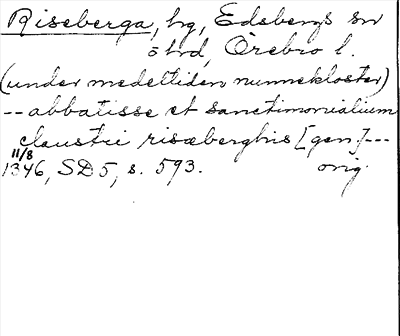 Riseberga, hg, Edsbergs sn
o hd, Örebro l.
(under medeltiden nunnekloster)
-- abbatisse et sanctimonialium
claustri risæberghis [gen.] ---
11/8
1346, SD 5, s. 593. orig.